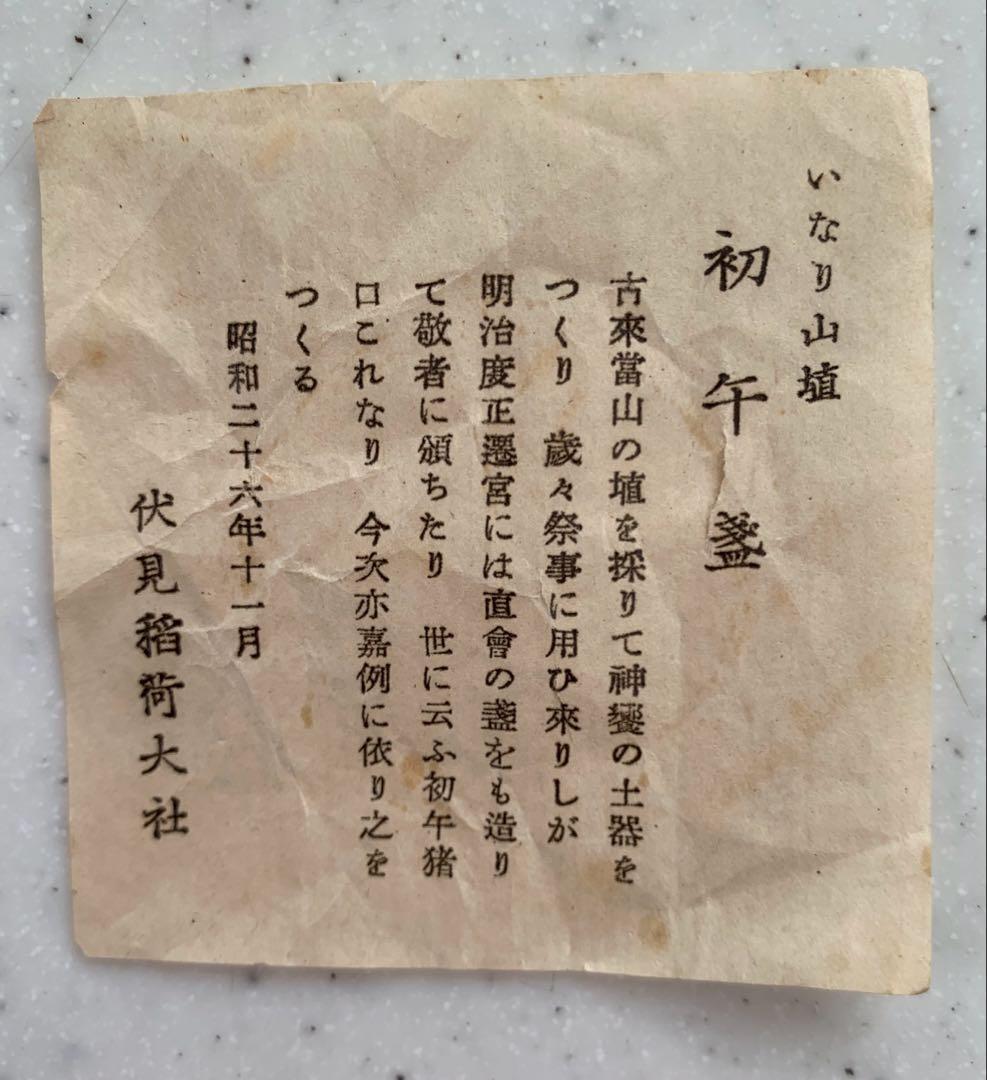 いなり山埴
初午盞
古來當山の埴を採りて神饗の土器を
つくり　歲々祭事に用ひ來りしが
明治度正遷宮には直會の盞をも造り
て敬者に頒ちたり　世に云ふ初午猪
口これなり　今次亦嘉例に依り之を
つくる
昭和二十六年十一月
伏見稻荷大社